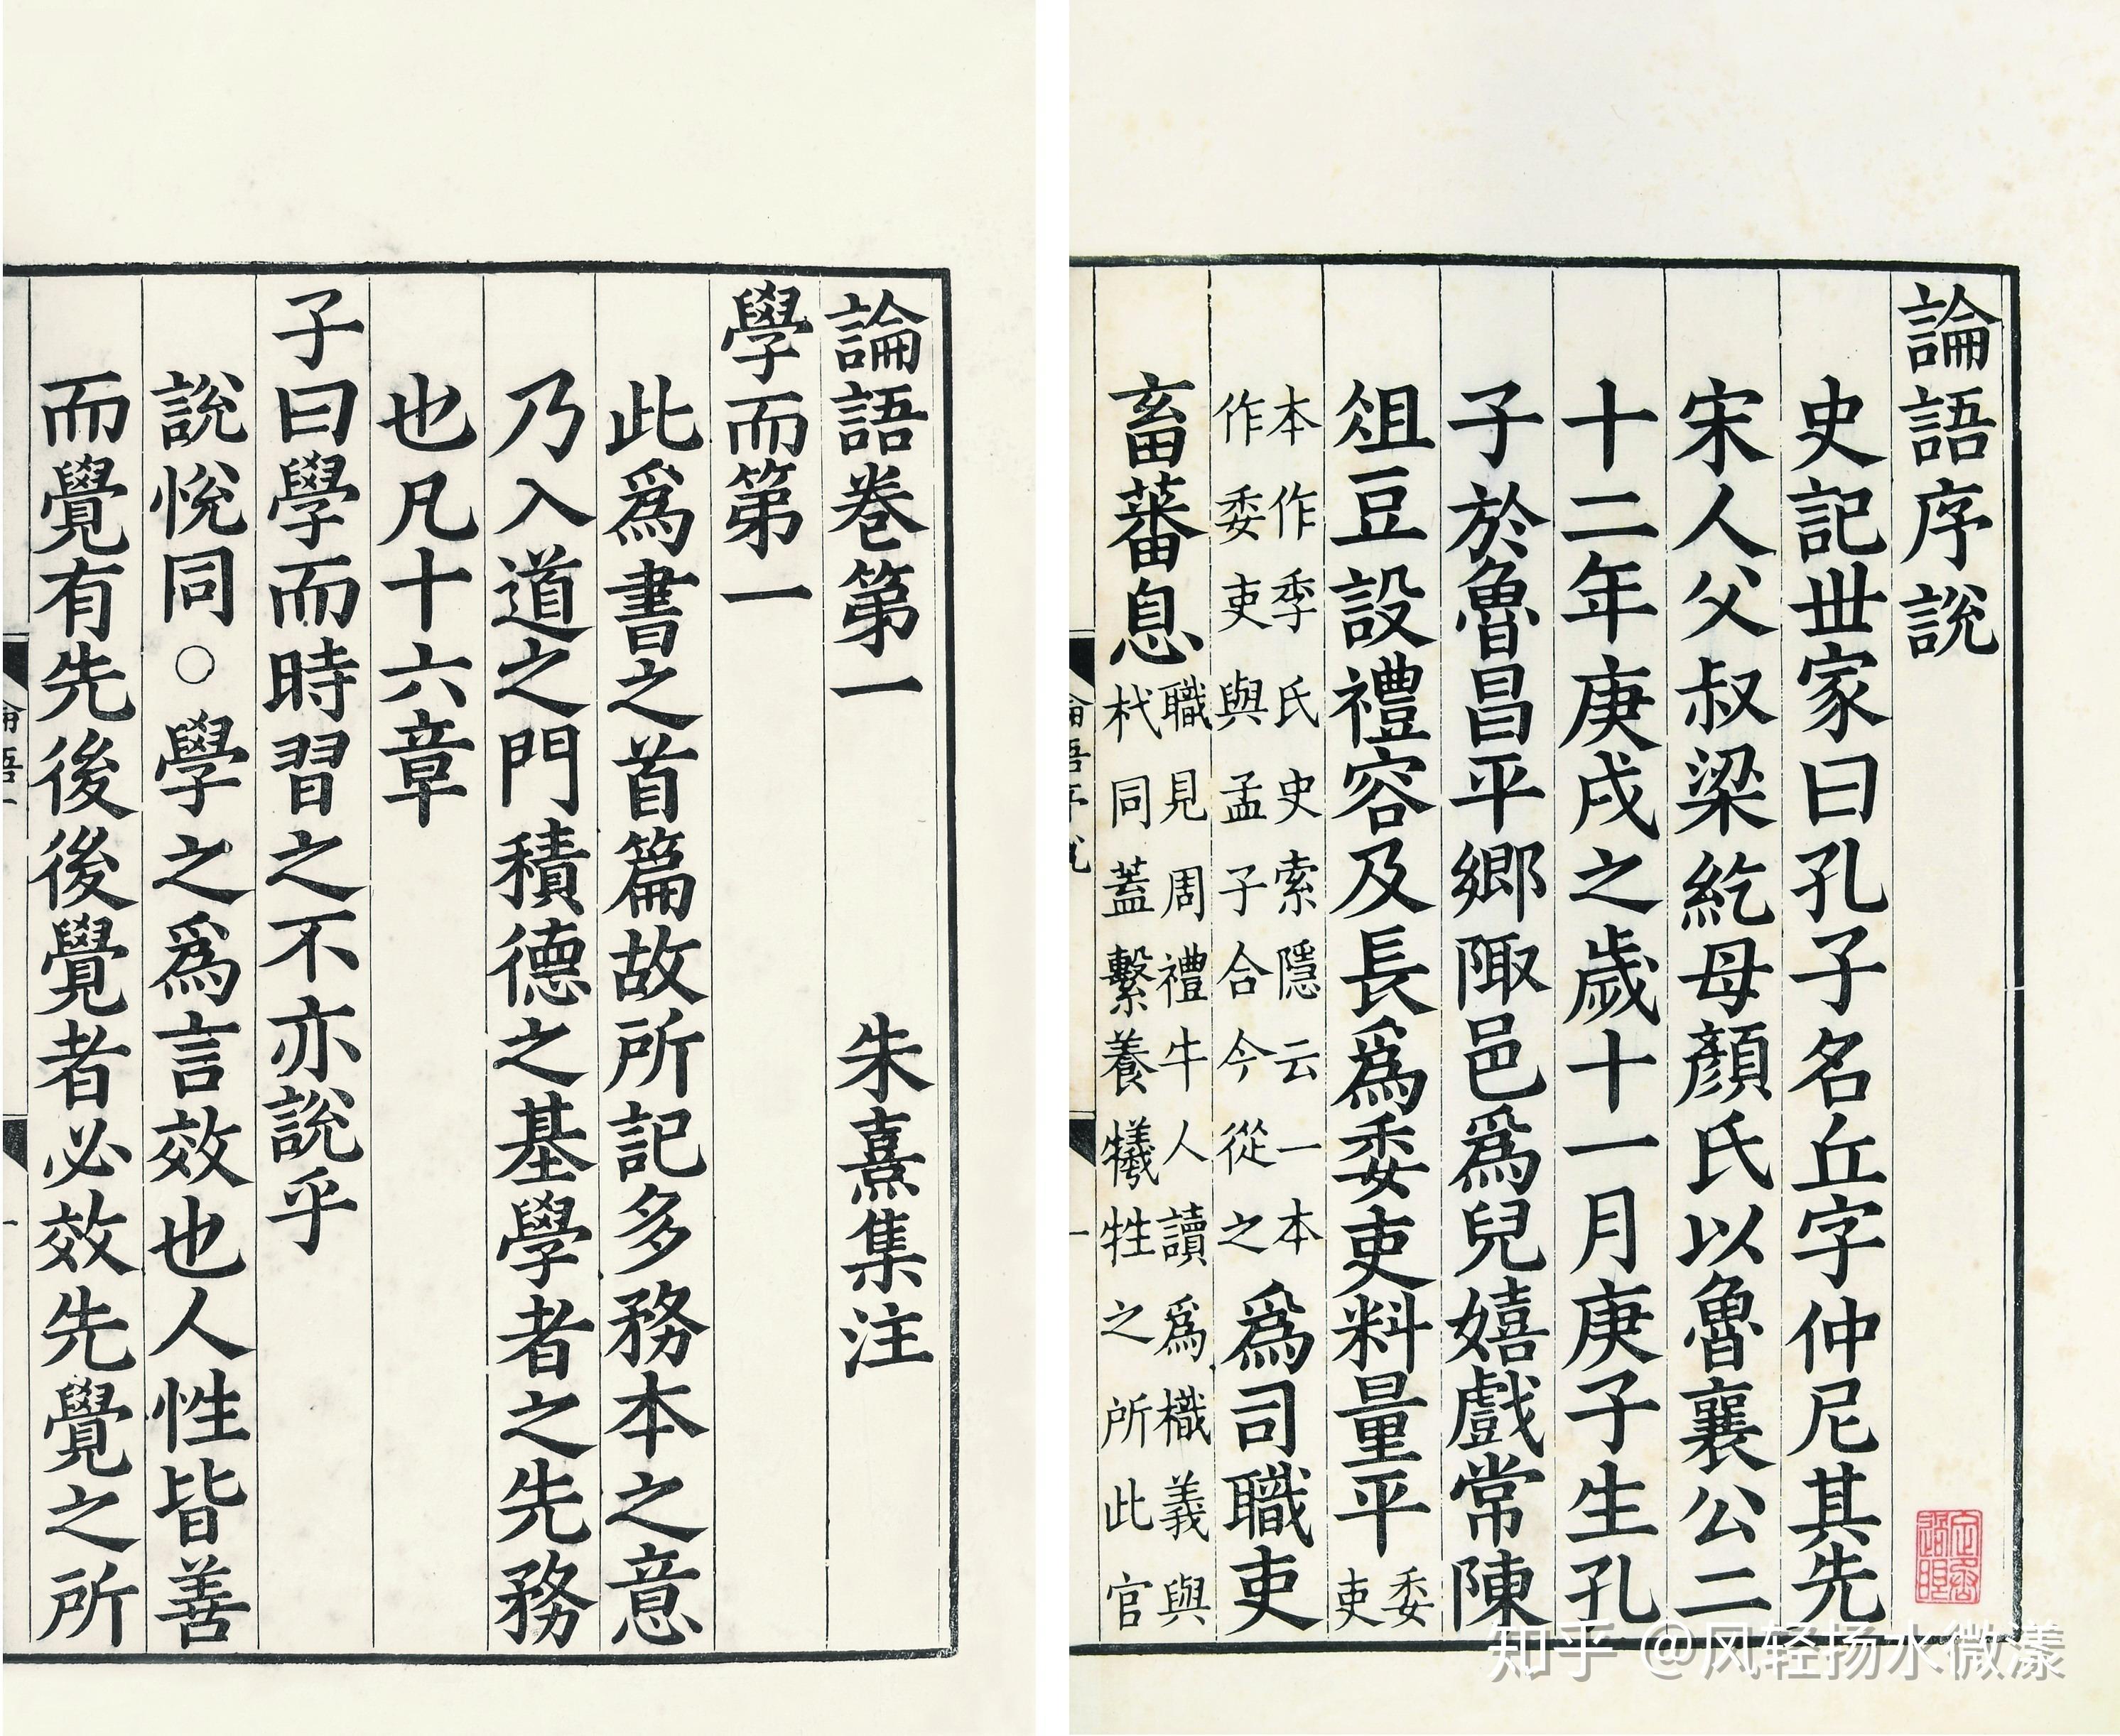 論語序說
史記世家曰孔子名丘字仲尼其先
宋人父叔梁紇母顏氏以魯襄公二
十二年庚戌之歲十一月庚子生孔
子於魯昌平鄉陬邑爲兒嬉戲常陳
俎豆設禮容及長爲委吏料量平委吏
本作季氏史索隱云一本作委吏與孟子合今從之爲司職吏
畜蕃息職見周禮牛人讀爲樴義與杙同蓋繫養犧牲之所此官
論語序說
一
論語卷第一 朱熹集注
學而第一
此爲書之首篇故所記多務本之意
乃入道之門積德之基學者之先務
也凡十六章
子曰學而時習之不亦說乎
說悅同○學之爲言效也人性皆善
而覺有先後後覺者必效先覺之所
論語一
一
知乎 @风轻扬水微漾